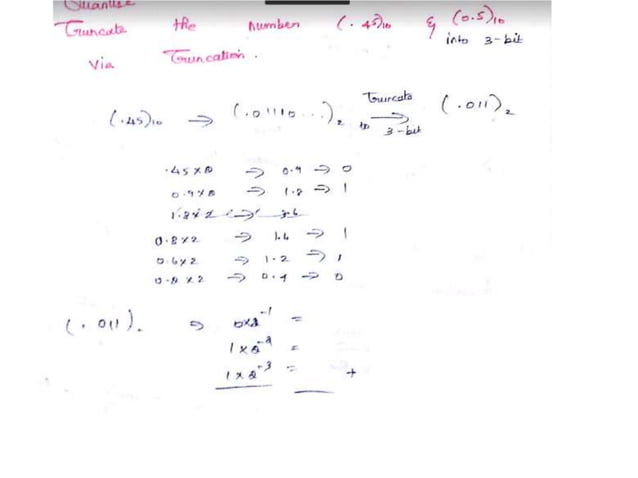 Quantise
Truncate the number (.45)10 & (0.5)10
into 3-bit
via Truncation.
(.45)10 ⇒ (.01110...)2 Truncate to 3-bit ⇒ (.011)2
.45×2 ⇒ 0.9 ⇒ 0
0.9×2 ⇒ 1.8 ⇒ 1
1.8×2 ⇒ 3.6
0.8×2 ⇒ 1.6 ⇒ 1
0.6×2 ⇒ 1.2 ⇒ 1
0.2×2 ⇒ 0.4 ⇒ 0
(.011)2 ⇒ 0×2^-1 =
1×2^-2 =
1×2^-3 = +